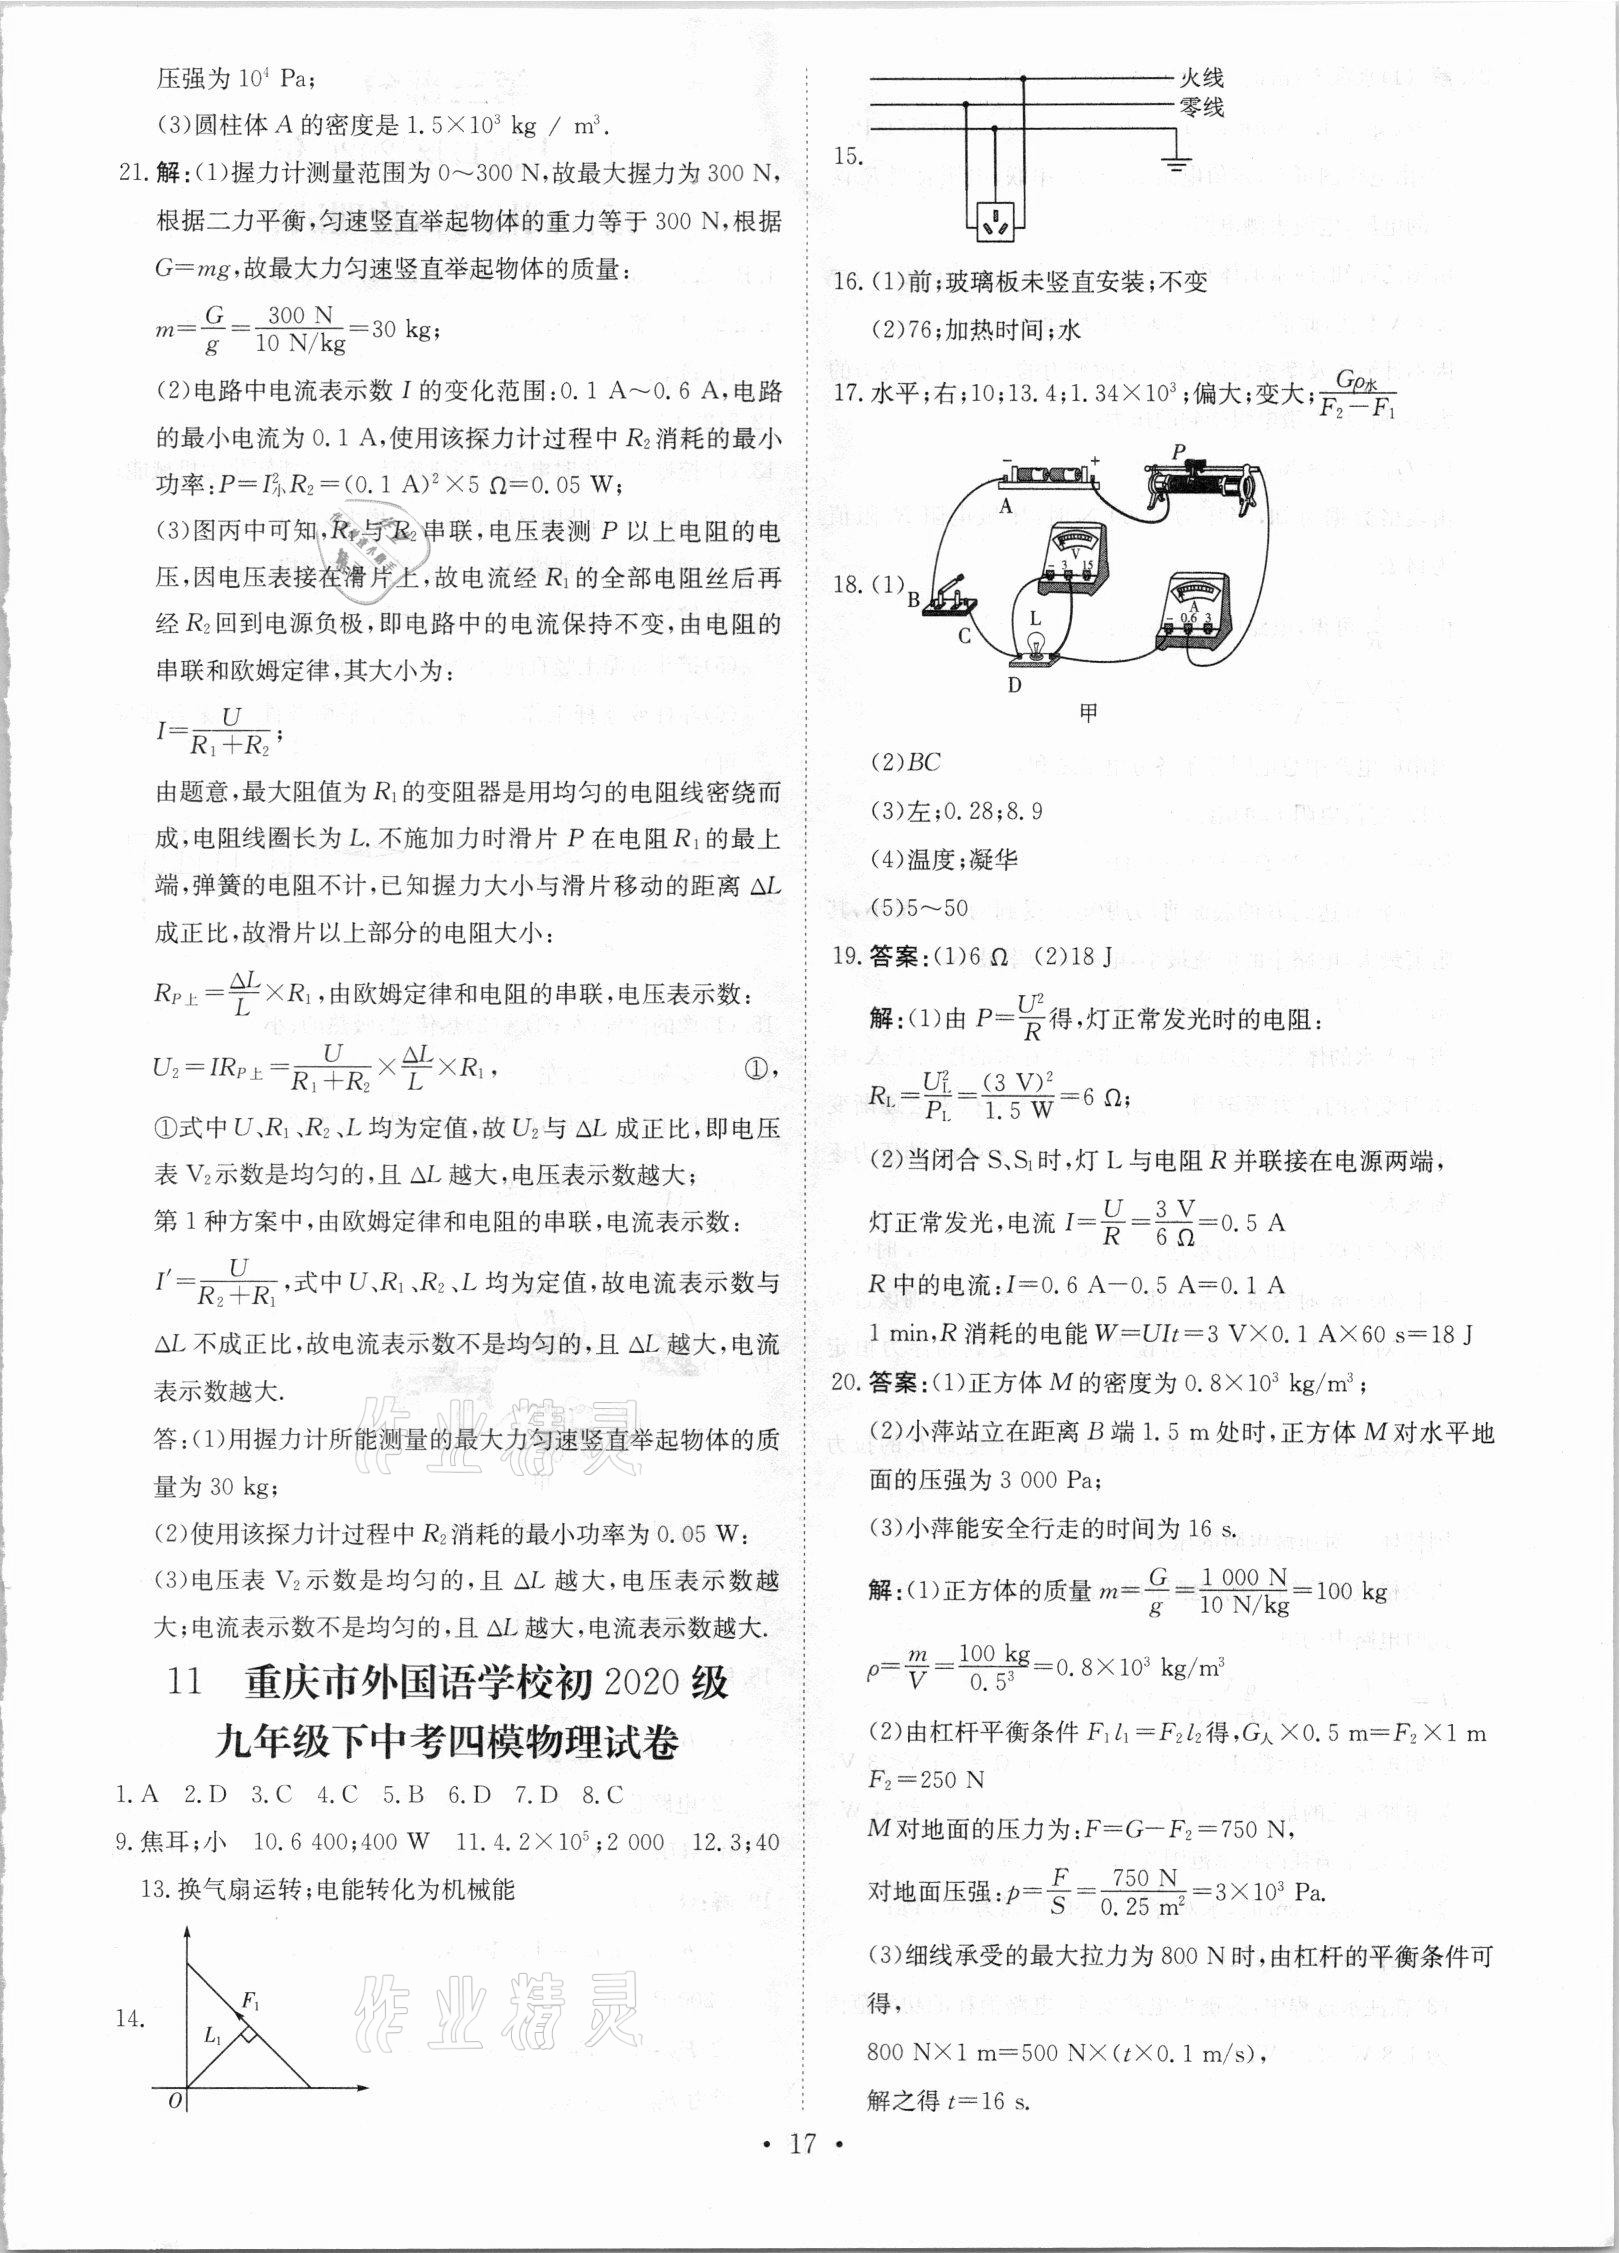 压强为 10⁴ Pa;
(3)圆柱体 A 的密度是 1.5×10³ kg / m³.
21. 解:(1)握力计测量范围为 0～300 N,故最大握力为 300 N,
根据二力平衡,匀速竖直举起物体的重力等于 300 N,根据
G=mg,故最大力匀速竖直举起物体的质量:
m=G/g=300 N/(10 N/kg)=30 kg;
(2)电路中电流表示数 I 的变化范围:0.1 A～0.6 A,电路
的最小电流为 0.1 A,使用该探力计过程中 R₂ 消耗的最小
功率:P=I²小R₂=(0.1 A)²×5 Ω=0.05 W;
(3)图丙中可知,R₁与 R₂ 串联,电压表测 P 以上电阻的电
压,因电压表接在滑片上,故电流经 R₁ 的全部电阻丝后再
经 R₂ 回到电源负极,即电路中的电流保持不变,由电阻的
串联和欧姆定律,其大小为:
I=U/(R₁+R₂);
由题意,最大阻值为 R₁ 的变阻器是用均匀的电阻线密绕而
成,电阻线圈长为 L. 不施加力时滑片 P 在电阻 R₁ 的最上
端,弹簧的电阻不计,已知握力大小与滑片移动的距离 △L
成正比,故滑片以上部分的电阻大小:
R_P上=△L/L×R₁,由欧姆定律和电阻的串联,电压表示数:
U₂=IR_P上=U/(R₁+R₂)×△L/L×R₁, ①,
①式中 U、R₁、R₂、L 均为定值,故 U₂ 与 △L 成正比,即电压
表 V₂ 示数是均匀的,且 △L 越大,电压表示数越大;
第 1 种方案中,由欧姆定律和电阻的串联,电流表示数:
I′=U/(R₂+R₁),式中 U、R₁、R₂、L 均为定值,故电流表示数与
△L 不成正比,故电流表示数不是均匀的,且 △L 越大,电流
表示数越大.
答:(1)用握力计所能测量的最大力匀速竖直举起物体的质
量为 30 kg;
(2)使用该探力计过程中 R₂ 消耗的最小功率为 0.05 W:
(3)电压表 V₂ 示数是均匀的,且 △L 越大,电压表示数越
大;电流表示数不是均匀的,且 △L 越大,电流表示数越大.
11 重庆市外国语学校初 2020 级
九年级下中考四模物理试卷
1.A 2.D 3.C 4.C 5.B 6.D 7.D 8.C
9.焦耳;小 10.6 400;400 W 11.4.2×10⁵;2 000 12.3;40
13.换气扇运转;电能转化为机械能
14.
F₁
L₁
O
作业精灵
作业精灵
火线
零线
15.
16.(1)前;玻璃板未竖直安装;不变
(2)76;加热时间;水
17.水平;右;10;13.4;1.34×10³;偏大;变大;Gρ水/(F₂－F₁)
18.(1)
－ ＋
P
A
V
－ 3 15
B
C
L
D
A
－ 0.6 3
甲
(2)BC
(3)左;0.28;8.9
(4)温度;凝华
(5)5～50
19.答案:(1)6 Ω (2)18 J
解:(1)由 P=U²/R得,灯正常发光时的电阻:
R_L=U_L²/P_L=(3 V)²/1.5 W=6 Ω;
(2)当闭合 S、S₁时,灯 L 与电阻 R 并联接在电源两端,
灯正常发光,电流 I=U/R=3 V/6 Ω=0.5 A
R 中的电流:I=0.6 A－0.5 A=0.1 A
1 min,R 消耗的电能 W=UIt=3 V×0.1 A×60 s=18 J
20.答案:(1)正方体 M 的密度为 0.8×10³ kg/m³;
(2)小萍站立在距离 B 端 1.5 m 处时,正方体 M 对水平地
面的压强为 3 000 Pa;
(3)小萍能安全行走的时间为 16 s.
解:(1)正方体的质量 m=G/g=1 000 N/(10 N/kg)=100 kg
ρ=m/V=100 kg/0.5³=0.8×10³ kg/m³
(2)由杠杆平衡条件 F₁l₁=F₂l₂得,G人×0.5 m=F₂×1 m
F₂=250 N
M 对地面的压力为:F=G－F₂=750 N,
对地面压强:p=F/S=750 N/0.25 m²=3×10³ Pa.
(3)细线承受的最大拉力为 800 N 时,由杠杆的平衡条件可
得,
800 N×1 m=500 N×(t×0.1 m/s),
解之得 t=16 s.
• 17 •